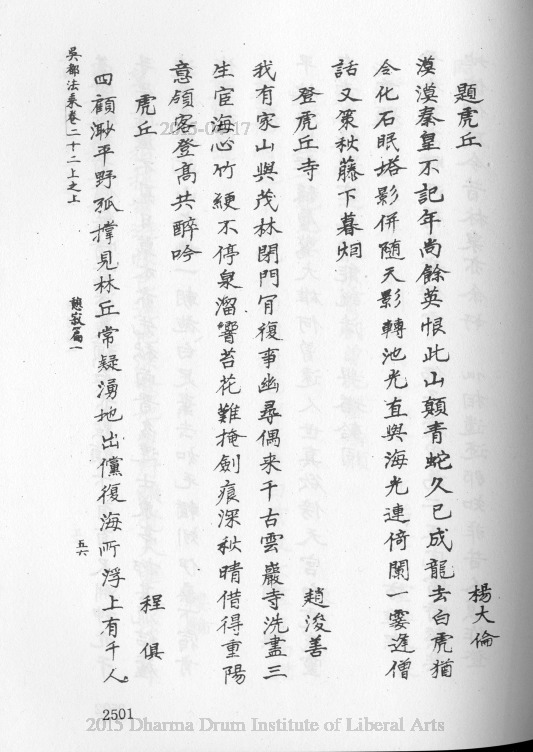 題虎丘
楊大倫
漠漠秦皇不記年尚餘英恨此山顛青蛇久已成龍去白虎猶
令化石眠塔影併隨天影轉池光直與海光連倚闌一霎逢僧
話又策秋藤下暮烟
登虎丘寺
趙浚善
我有家山與茂林閉門肎復事幽尋偶来千古雲巖寺洗盡三
生宦海心竹綆不停泉溜響苔花難掩劍痕深秋晴借得重陽
意領客登高共醉吟
虎丘
程俱
四顧渺平野孤撑見林丘常疑湧地出儻復海所浮上有千人
吳都法乘卷二十二上之上
憩寂篇一
五六
2501
2015 Dharma Drum Institute of Liberal Arts